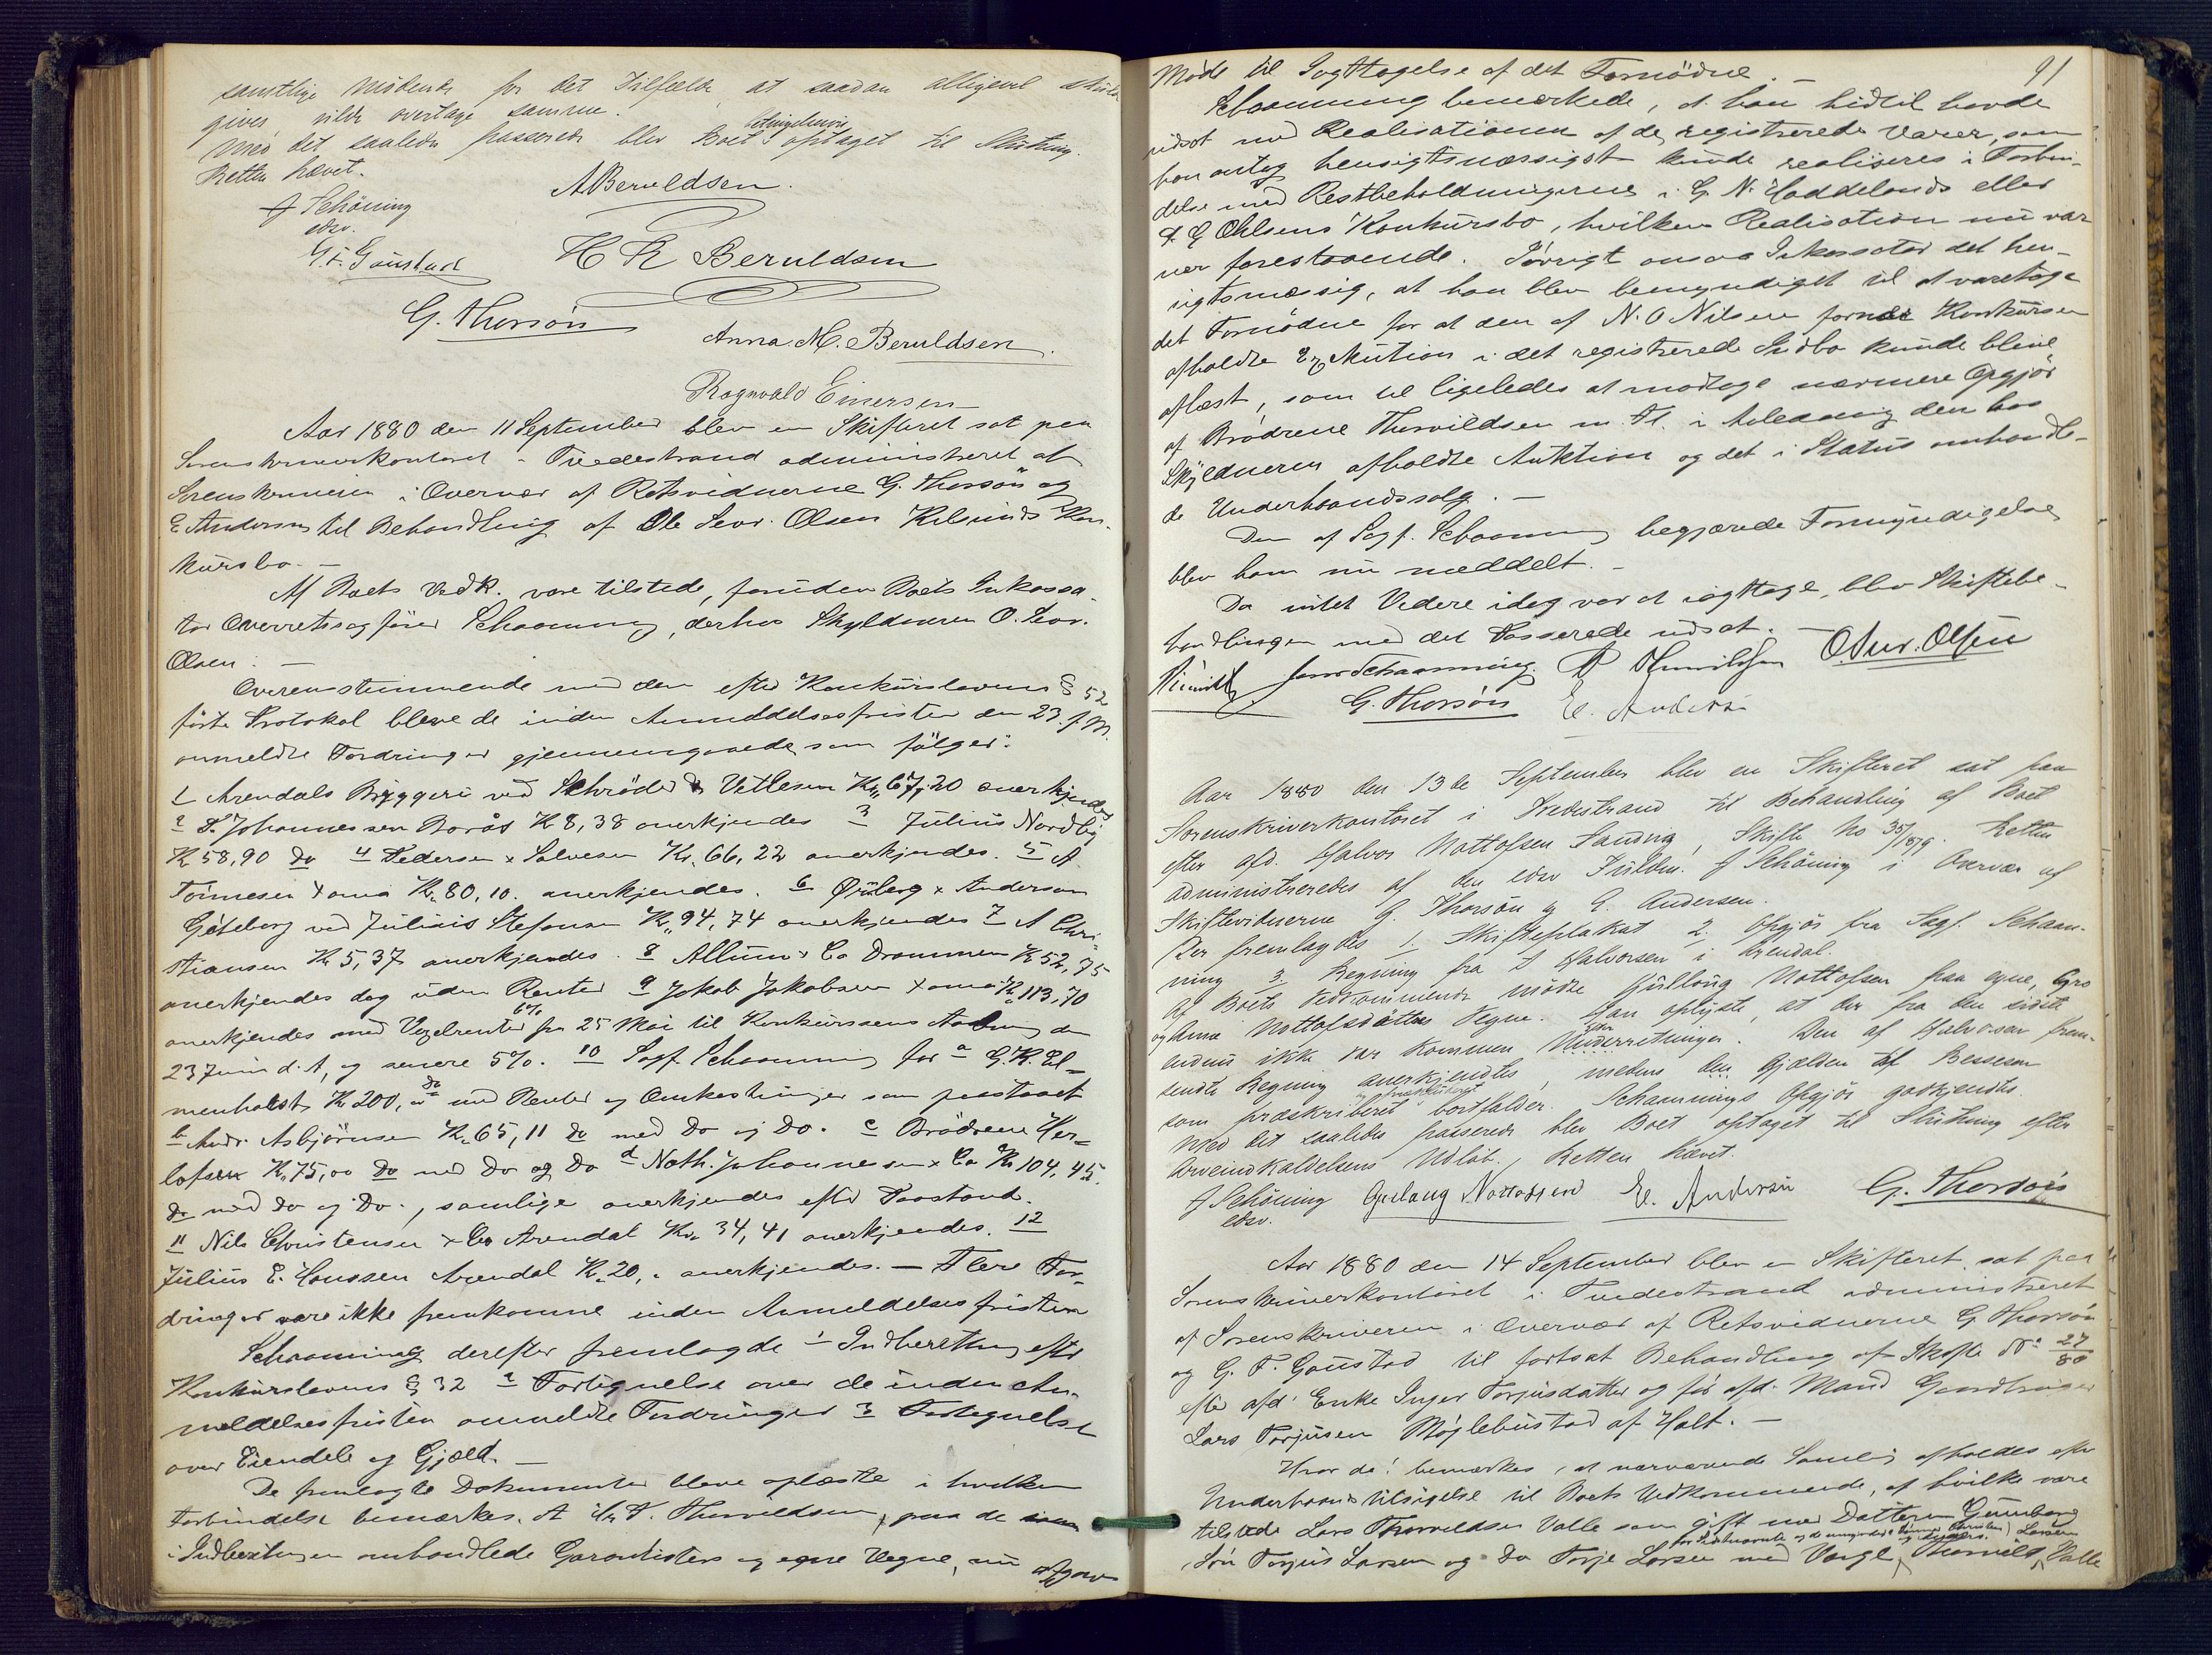 samtlige Mødende for det Tilfælde, at saadan alligevel skulde
gives vilde overtage samme.
Med det saaledes passerede blev Boet betingelsesvis optaget til Slutning.
Retten hævet.
J Schöning
edsv.
ABeruldsen.
G. F. Goustad
H R Beruldsen
G. Thorsøn
Anna. M. Beruldsen.
Ragnvald Einersen
Aar 1880 den 11 September blev en Skifteret sat paa
Sorenskriverkontoret i Tvedestrand administreret af
Sorenskriveren i Overvær af Retsvidnerne G. Thorsøn og
E Andersen til Behandling af Ole Sevr. Olsen Kilsunds Kon-
kursbo. –
Af Boets Vedk. vare tilstede, foruden Boets Inkassa-
tor Overretssagfører Schaanning, derhos Skyldneren O. Sevr.
Olsen. –
Overensstemmende med den efter Konkurslovens § 52
førte Protokol bleve de inden Anmeldelsesfristen den 23. f. M.
anmeldte Fordringer gjennemgaaede som følger:
1 Arendals Bryggeri ved Schrøder & Vetlesen Kr. 67,20 anerkjendes
2 S. Johannessen Borås K 8,38 anerkjendes 3 Julius Nordby
K 58,90 do 4 Pedersen & Salvesen Kr. 66,22 anerkjendes. 5 A
Tønnesen Kr. 80,10. anerkjendes. 6 Andersson
Göteborg ved Julius Stefansen Kr. 94,74 anerkjendes 7 A Chri-
stiansen K 5,37 anerkjendes. 8 Allum & Co Drammen K 52,75
anerkjendes dog uden Renter 9 Jakob Jakobsen K 113,70
anerkjendes med Vexelrenter 6% fra 25 Mai til Konkursens Aabning den
23 Juni d. A, og senere 5%. 10 Sagf. Schaanning for a G. K. El-
menholdt K 200, do med Renter og Omkostninger som paastaaet
b Andr. Asbjørnsen K. 65,11 do med do og do. c Brødrene Her-
lofsen K. 75,00 do med do og do d Nath. Johannessen & Co Kr 104,45.
do med do og do., samtlige anerkjendes efter Paastand.
11 Nils Christensen & Co Arendal Kr. 34,41 anerkjendes. 12
Julius E. Hanssen Arendal K. 20,. anerkjendes. – Flere For-
dringer vare ikke fremkomne inden Anmeldelsesfristen
Schaanning derefter fremlagde 1 Indberetning efter
Konkurslovens § 32 2 Fortegnelse over de inden An-
meldelsesfristen anmeldte Fordringer 3 Fortegnelse
over Eiendele og Gjæld. –
De fremlagte Dokumenter bleve oplæste i hvilken
Forbindelse bemærkes. at Thorvildsen, paa de
i Indberetningen omhandlede Garantisters og egne Vegne, nu afgav
91
Møde til Iagttagelse af det Fornødne. –
Schaanning bemærkede, at han hidtil havde
udsat med Realisationen af de registrerede Varer, som
han antog hensigtsmæssigst kunde realiseres i Forbin-
delse med Restbeholdningerne i G. N. Haddelands eller
Ohlsens Konkursbo, hvilken Realisation nu var
nær forestaaende. Iøvrigt ansaa Inkassator det hen-
sigtsmæssig, at han blev bemyndiget til at varetage
det Fornødne for at den af N. O Nilsen Konkursen
afholdte Exekution i det registrerede Indbo kunde blive
aflæst, som til ligeledes at modtage nærmere Opgjør
af Brødrene Thorvildsen m. Fl. i Anledning den hos
Skyldneren afholdte Auktion og det i Status omhandle-
de Underhaandssalg. –
Den af Sagf. Schaanning begjærede Bemyndigelse
blev ham nu meddelt. –
Da intet Videre idag var at iagttage, blev Skiftebe-
handlingen med det Passerede udsat. –
Jens Schaanning. Thorvildsen O. Sevr. Olsen
G. Thorsøn E. Andersen
Aar 1880 den 13de September blev en Skifteret sat paa
Sorenskriverkontoret i Tvedestrand til Behandling af Boet
efter afd. Halvor Nottolfsen Sandvig, Skifte No 35/1879. Retten
administreredes af den edsv Fuldm. J Schöning i Overvær af
Skiftevidnerne G. Thorsøn og E. Andersen.
Der fremlagdes 1. Skifteplakat 2. Opgjør fra Sagf. Schaan-
ning 3. Regning fra Z Halvorsen i Arendal.
Af Boets Vedkommende mødte Gjulloug Nottolfsen paa egne, Gros
og Anne Nottolfsdøttres Vegne. Han oplyste, at der fra den sidste
endnu ikke var kommen Underretninger. Den af Halvorsen frem-
sendte Regning anerkjendtes, medens den Gjælden til Bessesen
som præskriberet bortfalder. Schaannings Opgjør godkjendtes.
Med det saaledes passerede blev Boet optaget til Slutning efter
Arveindkaldelsens Udløb. Retten hævet.
J Schöning
edsv.
Gjulaug Nottolfsen E. Andersen G. Thorsøn
Aar 1880 den 14 September blev en Skifteret sat paa
Sorenskriverkontoret i Tvedestrand administreret
af Sorenskriveren i Overvær af Retsvidnerne G Thorsøn
og G. F. Goustad til fortsat Behandling af Skifte No 27/80
efter afd. Enke Inger Torjusdatter og før afd. Mand Gaardbruger
Lars Torjusen Møglebustad af Holt. –
Hvor da! bemærkes, at nærværende Samling afholdes efter
Underhaands tilsigelse til Boets Vedkommende, af hvilke vare
tilstede Lars Thorvildsen Valle som gift med Datteren Gunborg
Søn Torjus Larsen og do Terje Larsen med Værge Thorvild Valle